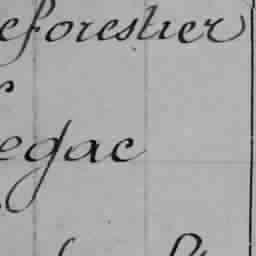 eforestier
egac